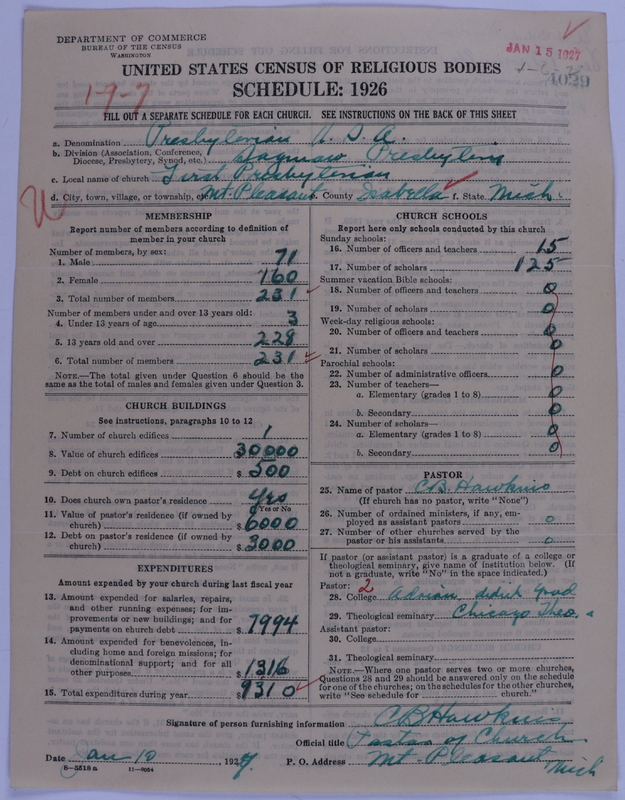 DEPARTMENT OF COMMERCE
BUREAU OF THE CENSUS
WASHINGTON
JAN 15 1927
4029
1-9-7
UNITED STATES CENSUS OF RELIGIOUS BODIES
SCHEDULE: 1926
FILL OUT A SEPARATE SCHEDULE FOR EACH CHURCH. SEE INSTRUCTIONS ON THE BACK OF THIS SHEET
a. Denomination Presbyterian U.S.A.
b. Division (Association, Conference, Diocese, Presbytery, Synod, etc.) Saginaw Presbytery
c. Local name of church First Presbyterian
d. City, town, village, or township, etc. Mt. Pleasant e. County Isabella f. State Mich
MEMBERSHIP
Report number of members according to definition of
member in your church
Number of members, by sex:
1. Male 71
2. Female 160
3. Total number of members 231
Number of members under and over 13 years old:
4. Under 13 years of age 3
5. 13 years old and over 228
6. Total number of members 231
NOTE.—The total given under Question 6 should be the
same as the total of males and females given under Question 3.
CHURCH BUILDINGS
See instructions, paragraphs 10 to 12
7. Number of church edifices 1
8. Value of church edifices $30000
9. Debt on church edifices $500
10. Does church own pastor's residence Yes
Yes or No
11. Value of pastor's residence (if owned by
church) $6000
12. Debt on pastor's residence (if owned by
church) $3000
EXPENDITURES
Amount expended by church during last fiscal year
13. Amount expended for salaries, repairs,
and other running expenses; for im-
provements or new buildings; and for
payments on church debt $7994
14. Amount expended for benevolences, in-
cluding home and foreign missions; for
denominational support; and for all
other purposes $1316
15. Total expenditures during year $9310
CHURCH SCHOOLS
Report here only schools conducted by this church
Sunday schools:
16. Number of officers and teachers 15
17. Number of scholars 125
Summer vacation Bible schools:
18. Number of officers and teachers 0
19. Number of scholars 0
Week-day religious schools:
20. Number of officers and teachers 0
21. Number of scholars 0
Parochial schools:
22. Number of administrative officers 0
23. Number of teachers—
a. Elementary (grades 1 to 8) 0
b. Secondary 0
24. Number of scholars—
a. Elementary (grades 1 to 8) 0
b. Secondary 0
PASTOR
25. Name of pastor C.B. Hawkins
(If church has no pastor, write "None")
26. Number of ordained ministers, if any, em-
ployed as assistant pastors 0
27. Number of other churches served by the
pastor or his assistants 0
If pastor (or assistant pastor) is a graduate of a college or
theological seminary, give name of institution below. (If
not a graduate, write "No" in the space indicated.)
Pastor: 2
28. College Adrian, didn't grad
29. Theological seminary Chicago Theo.
Assistant pastor:
30. College
31. Theological seminary
NOTE.—Where one pastor serves two or more churches,
Questions 28 and 29 should be answered only on the schedule
for one of the churches; on the schedules for the other churches,
write "See schedule for church."
Signature of person furnishing information C B Hawkins
Official title Pastor of Church
Date Jan 10 1927 P. O. Address Mt. Pleasant Mich
8-5518 a 11-9054